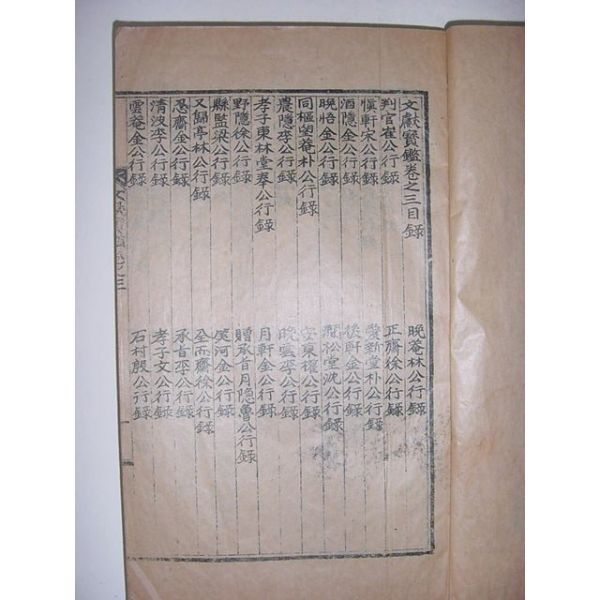 文獻寶鑑卷之三目錄
晩菴林公行錄
判官崔公行錄
正齋徐公行錄
愼軒宋公行錄
新堂朴公行錄
酒隱金公行錄
後軒金公行錄
晩悟金公行錄
澗松堂沈公行錄
同樞望菴朴公行錄
安東權公行錄
農隱李公行錄
晩雲李公行錄
孝子東林堂奉公行錄
月軒金公行錄
野隱徐公行錄
贈承旨月隱曺公行錄
縣監梁公行錄
笑河金公行錄
又歸亭林公行錄
全而齋徐公行錄
忍齋金公行錄
承旨李公行錄
淸波李公行錄
孝子文公行錄
雲菴金公行錄
石村殷公行錄
文獻寶鑑卷之三
一